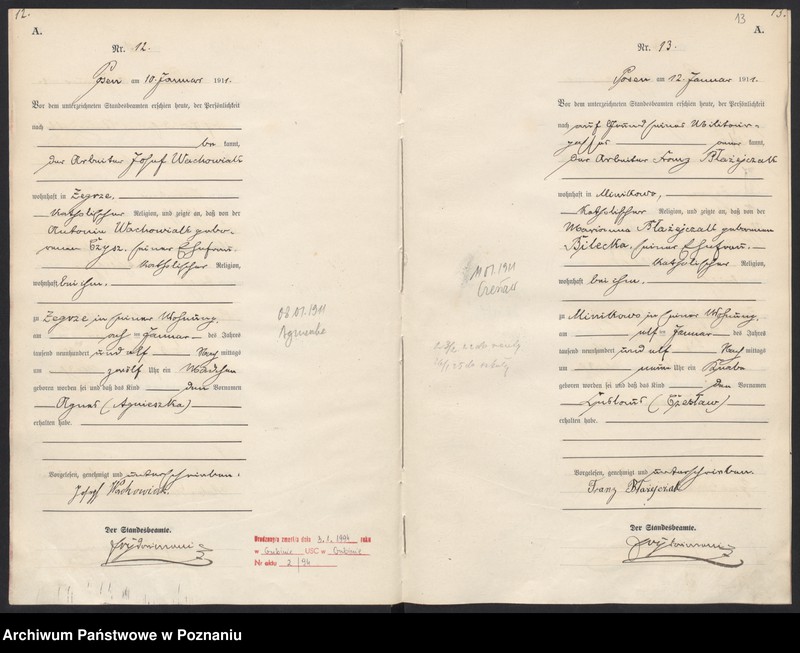 12.
A.
Nr. 12.
Posen am 10. Januar 1911.
Vor dem unterzeichneten Standesbeamten erschien heute, der Persönlichkeit
nach
be kannt,
der Arbeiter Josef Wachowiak
wohnhaft in Żegrze,
katholischer Religion, und zeigte an, daß von der
Antonia Wachowiak gebo-
renen Czysz, seiner Ehefrau
katholischer Religion,
wohnhaft bei ihm,
zu Żegrze in seiner Wohnung,
am acht en Januar des Jahres
tausend neunhundert und elf Nachmittags
um zwölf Uhr ein Mädchen
geboren worden sei und daß das Kind den Vornamen
Agnes (Agnieszka)
erhalten habe.
Vorgelesen, genehmigt und unterschrieben.
Josef Wachowiak.
Der Standesbeamte.
08.01.1911
Agnieszka
Urodzony/a zmarł/a dnia 3.1.1994 roku
w Gubinie USC w Gubinie
Nr aktu 2/94
13
13.
A.
Nr. 13.
Posen am 12. Januar 1911.
Vor dem unterzeichneten Standesbeamten erschien heute, der Persönlichkeit
nach auf Grund seines Militair-
passes aner kannt,
der Arbeiter Franz Błażejczak
wohnhaft in Minikowo,
katholischer Religion, und zeigte an, daß von der
Marianna Błażejczak geborenen
Bilecka, seiner Ehefrau
katholischer Religion,
wohnhaft bei ihm,
zu Minikowo in seiner Wohnung,
am elf ten Januar des Jahres
tausend neunhundert und elf Nachmittags
um neun Uhr ein Knabe
geboren worden sei und daß das Kind den Vornamen
(Czesław)
erhalten habe.
Vorgelesen, genehmigt und unterschrieben.
Franz Błażejczak
Der Standesbeamte.
11.01.1911
Czesław
Archiwum Państwowe w Poznaniu